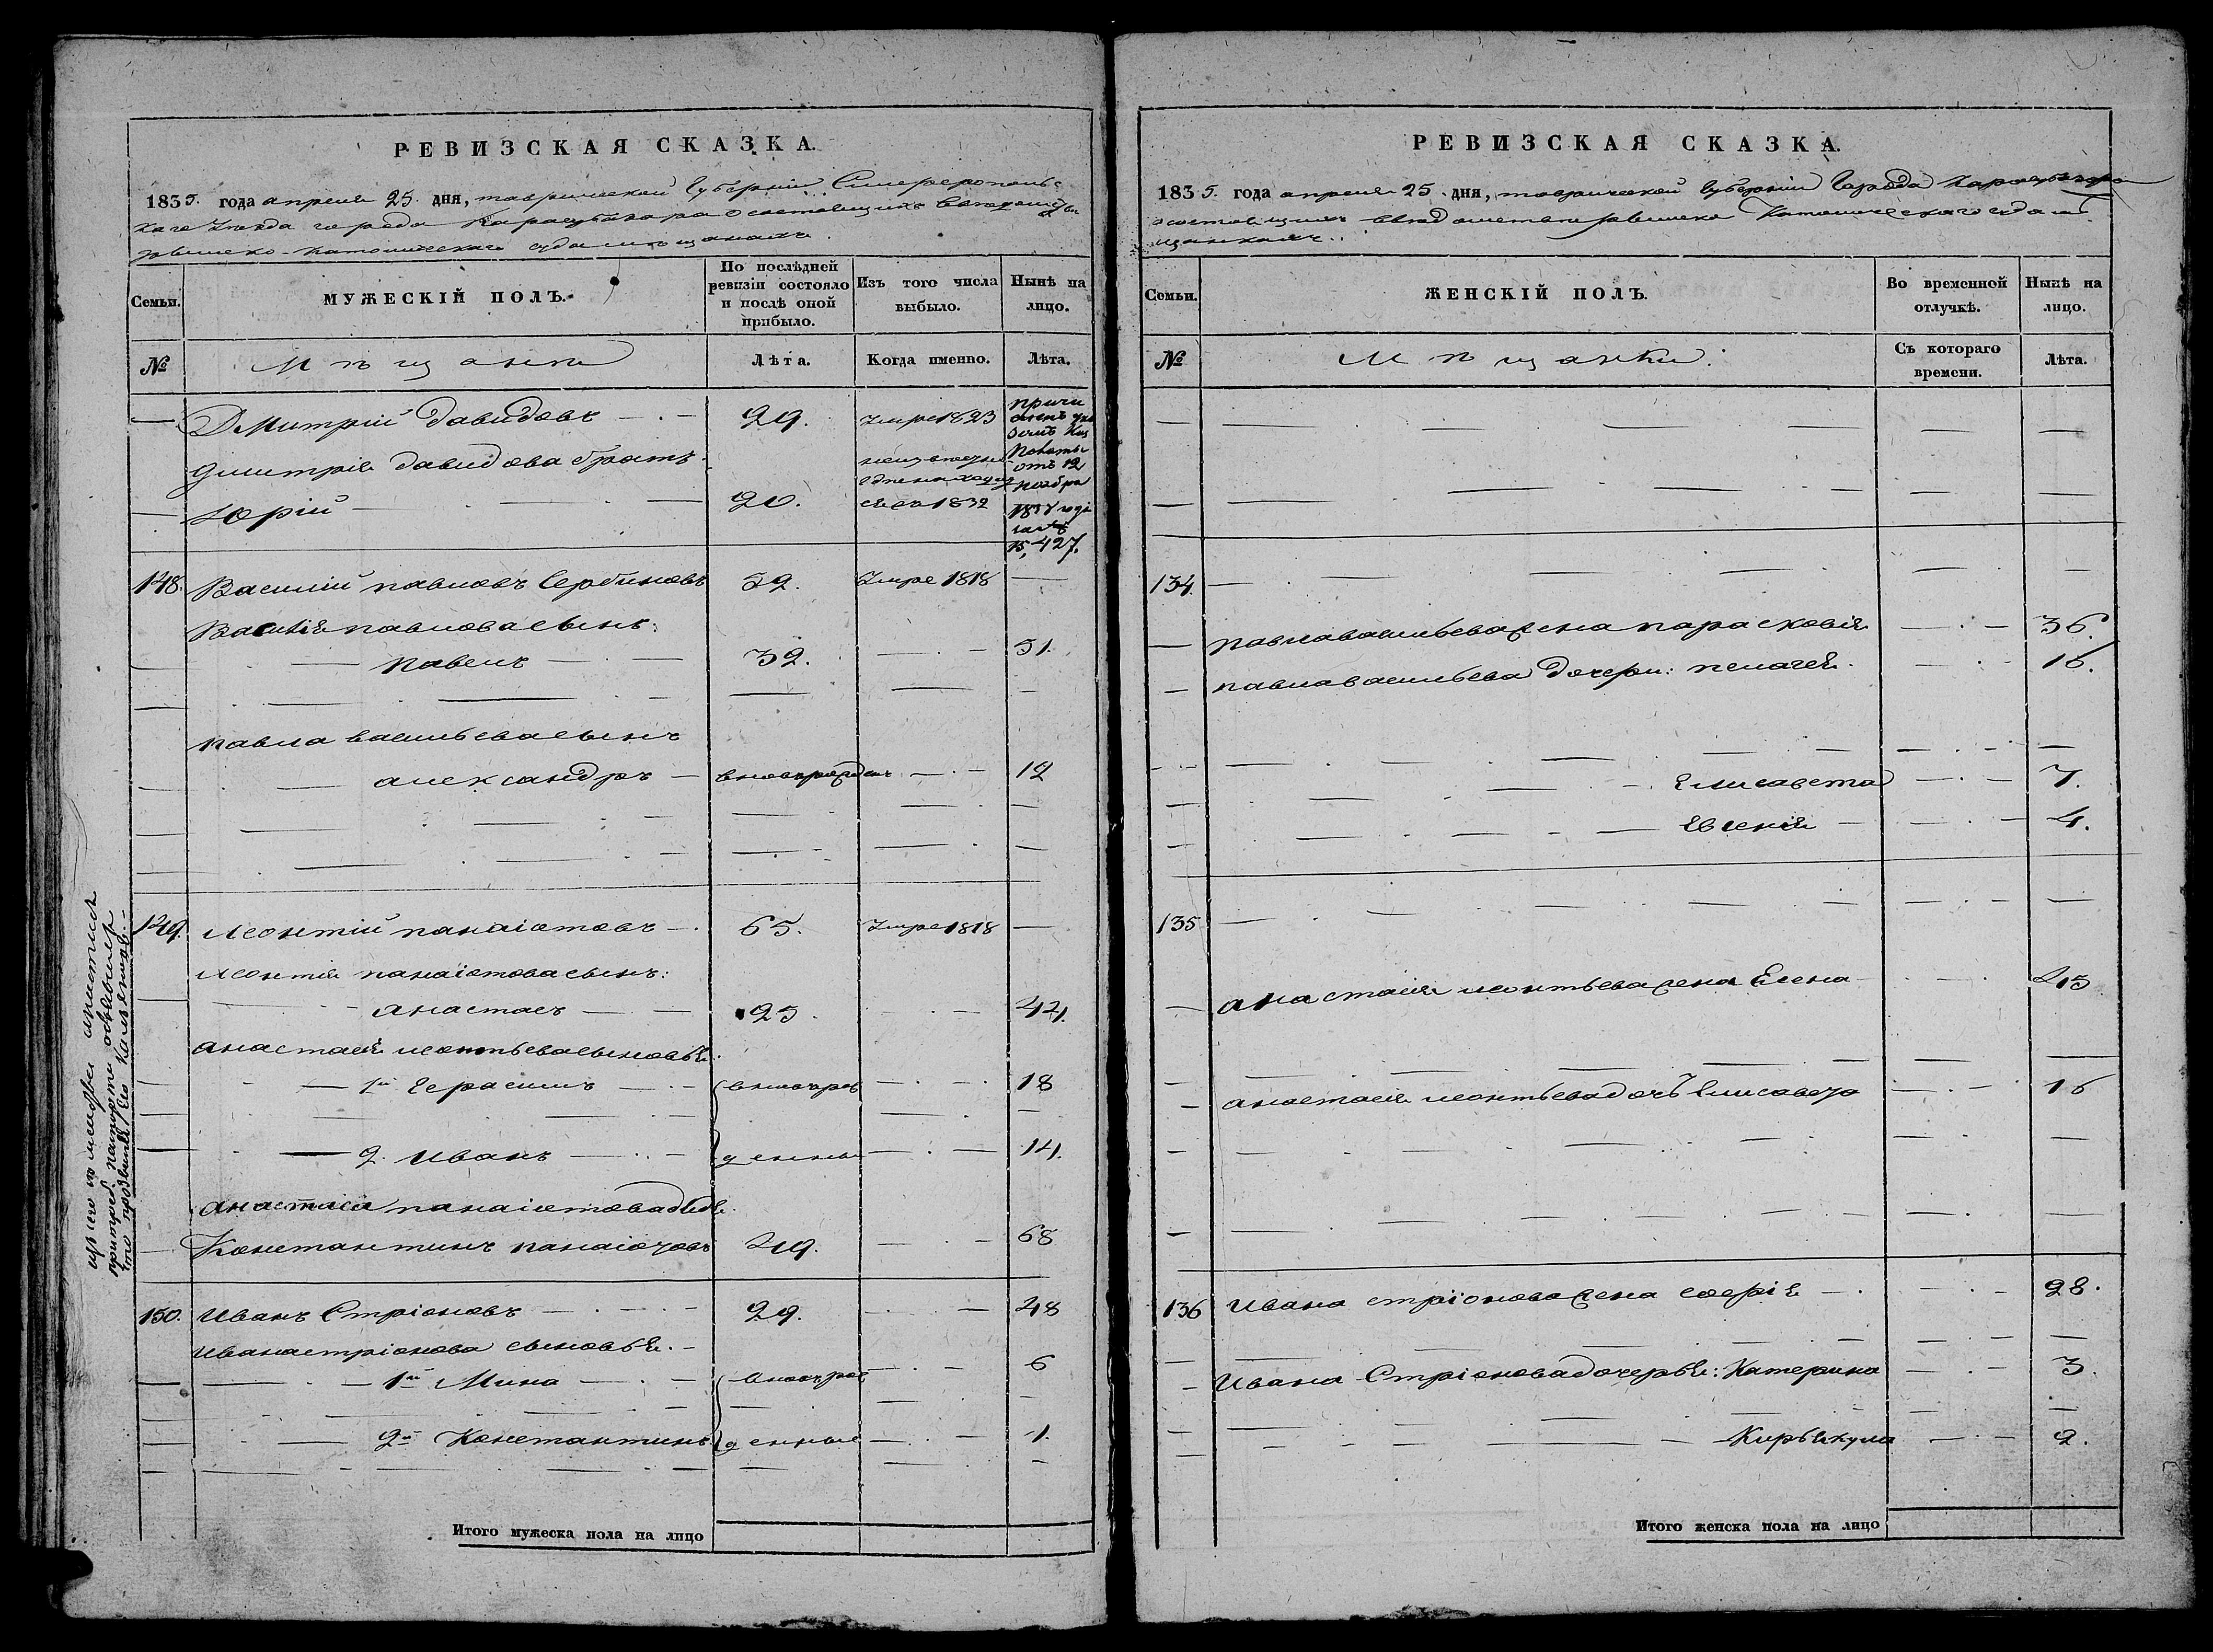 РЕВИЗСКАЯ СКАЗКА.
1835. года апреля 25. дня, таврической Губернии Симферопольс
каго Уезда города Карасубазара о состоящихъ въ ведомстве
римско-католическаго суда мещанахъ.
Семьи.
МУЖЕСКІЙ ПОЛЪ.
По послѣдней ревизіи состояло и послѣ оной прибыло.
Изъ того числа выбыло.
Нынѣ на лицо.
№
Мѣщане
Лѣта.
Когда именно.
Лѣта.
Дмитрій давидовъ 29. Умре 1823
причи
сленъ
Дмитрія давидова братъ
Юрій 20. 1832
отъ 12
ноября
1837 года
15,427.
148. Василій павловъ Сербиновъ 52. Умре 1818
Василія павлова сынъ:
павелъ 32. 51.
павла васильева сынъ
александръ вновьрожденъ 12
149. Леонтій панаіотовъ 65. Умре 1818
Леонтія панаіотова сынъ:
анастасъ 25. 44.
анастасія леонтьева сыновья:
1й Герасимъ вновьрож 18
2. Иванъ денные 14.
анастаса панаіотова дядя
Константинъ панаіотовъ 49. 68
150. Иванъ Стріоновъ 29. 48
Ивана стріонова сыновья.
1й Мина вновьрож 6
2й Константинъ денные 1.
Итого мужеска пола на лицо
что прозвание Его
РЕВИЗСКАЯ СКАЗКА.
1835. года апреля 25. дня, таврической Губерніи Города Карасубазара
о состоящихъ въ ведомстве римско Католическаго суда мѣ
щанкахъ.
Семьи.
ЖЕНСКІЙ ПОЛЪ.
Во временной отлучкѣ.
Нынѣ на лицо.
№
Мѣщанки.
Съ котораго времени.
Лѣта.
134.
павла васильева жена парасковія 36.
павла васильева дочери: пелагея. 16.
Елисавета 7.
Евгенія 4.
135
анастасія леонтьева жена Елена 45
анастасія леонтьева дочь Елисавета 16
136 Ивана стріонова жена софія 28.
Ивана Стріонова дочерья: Катерина 3.
2.
Итого женска пола на лицо